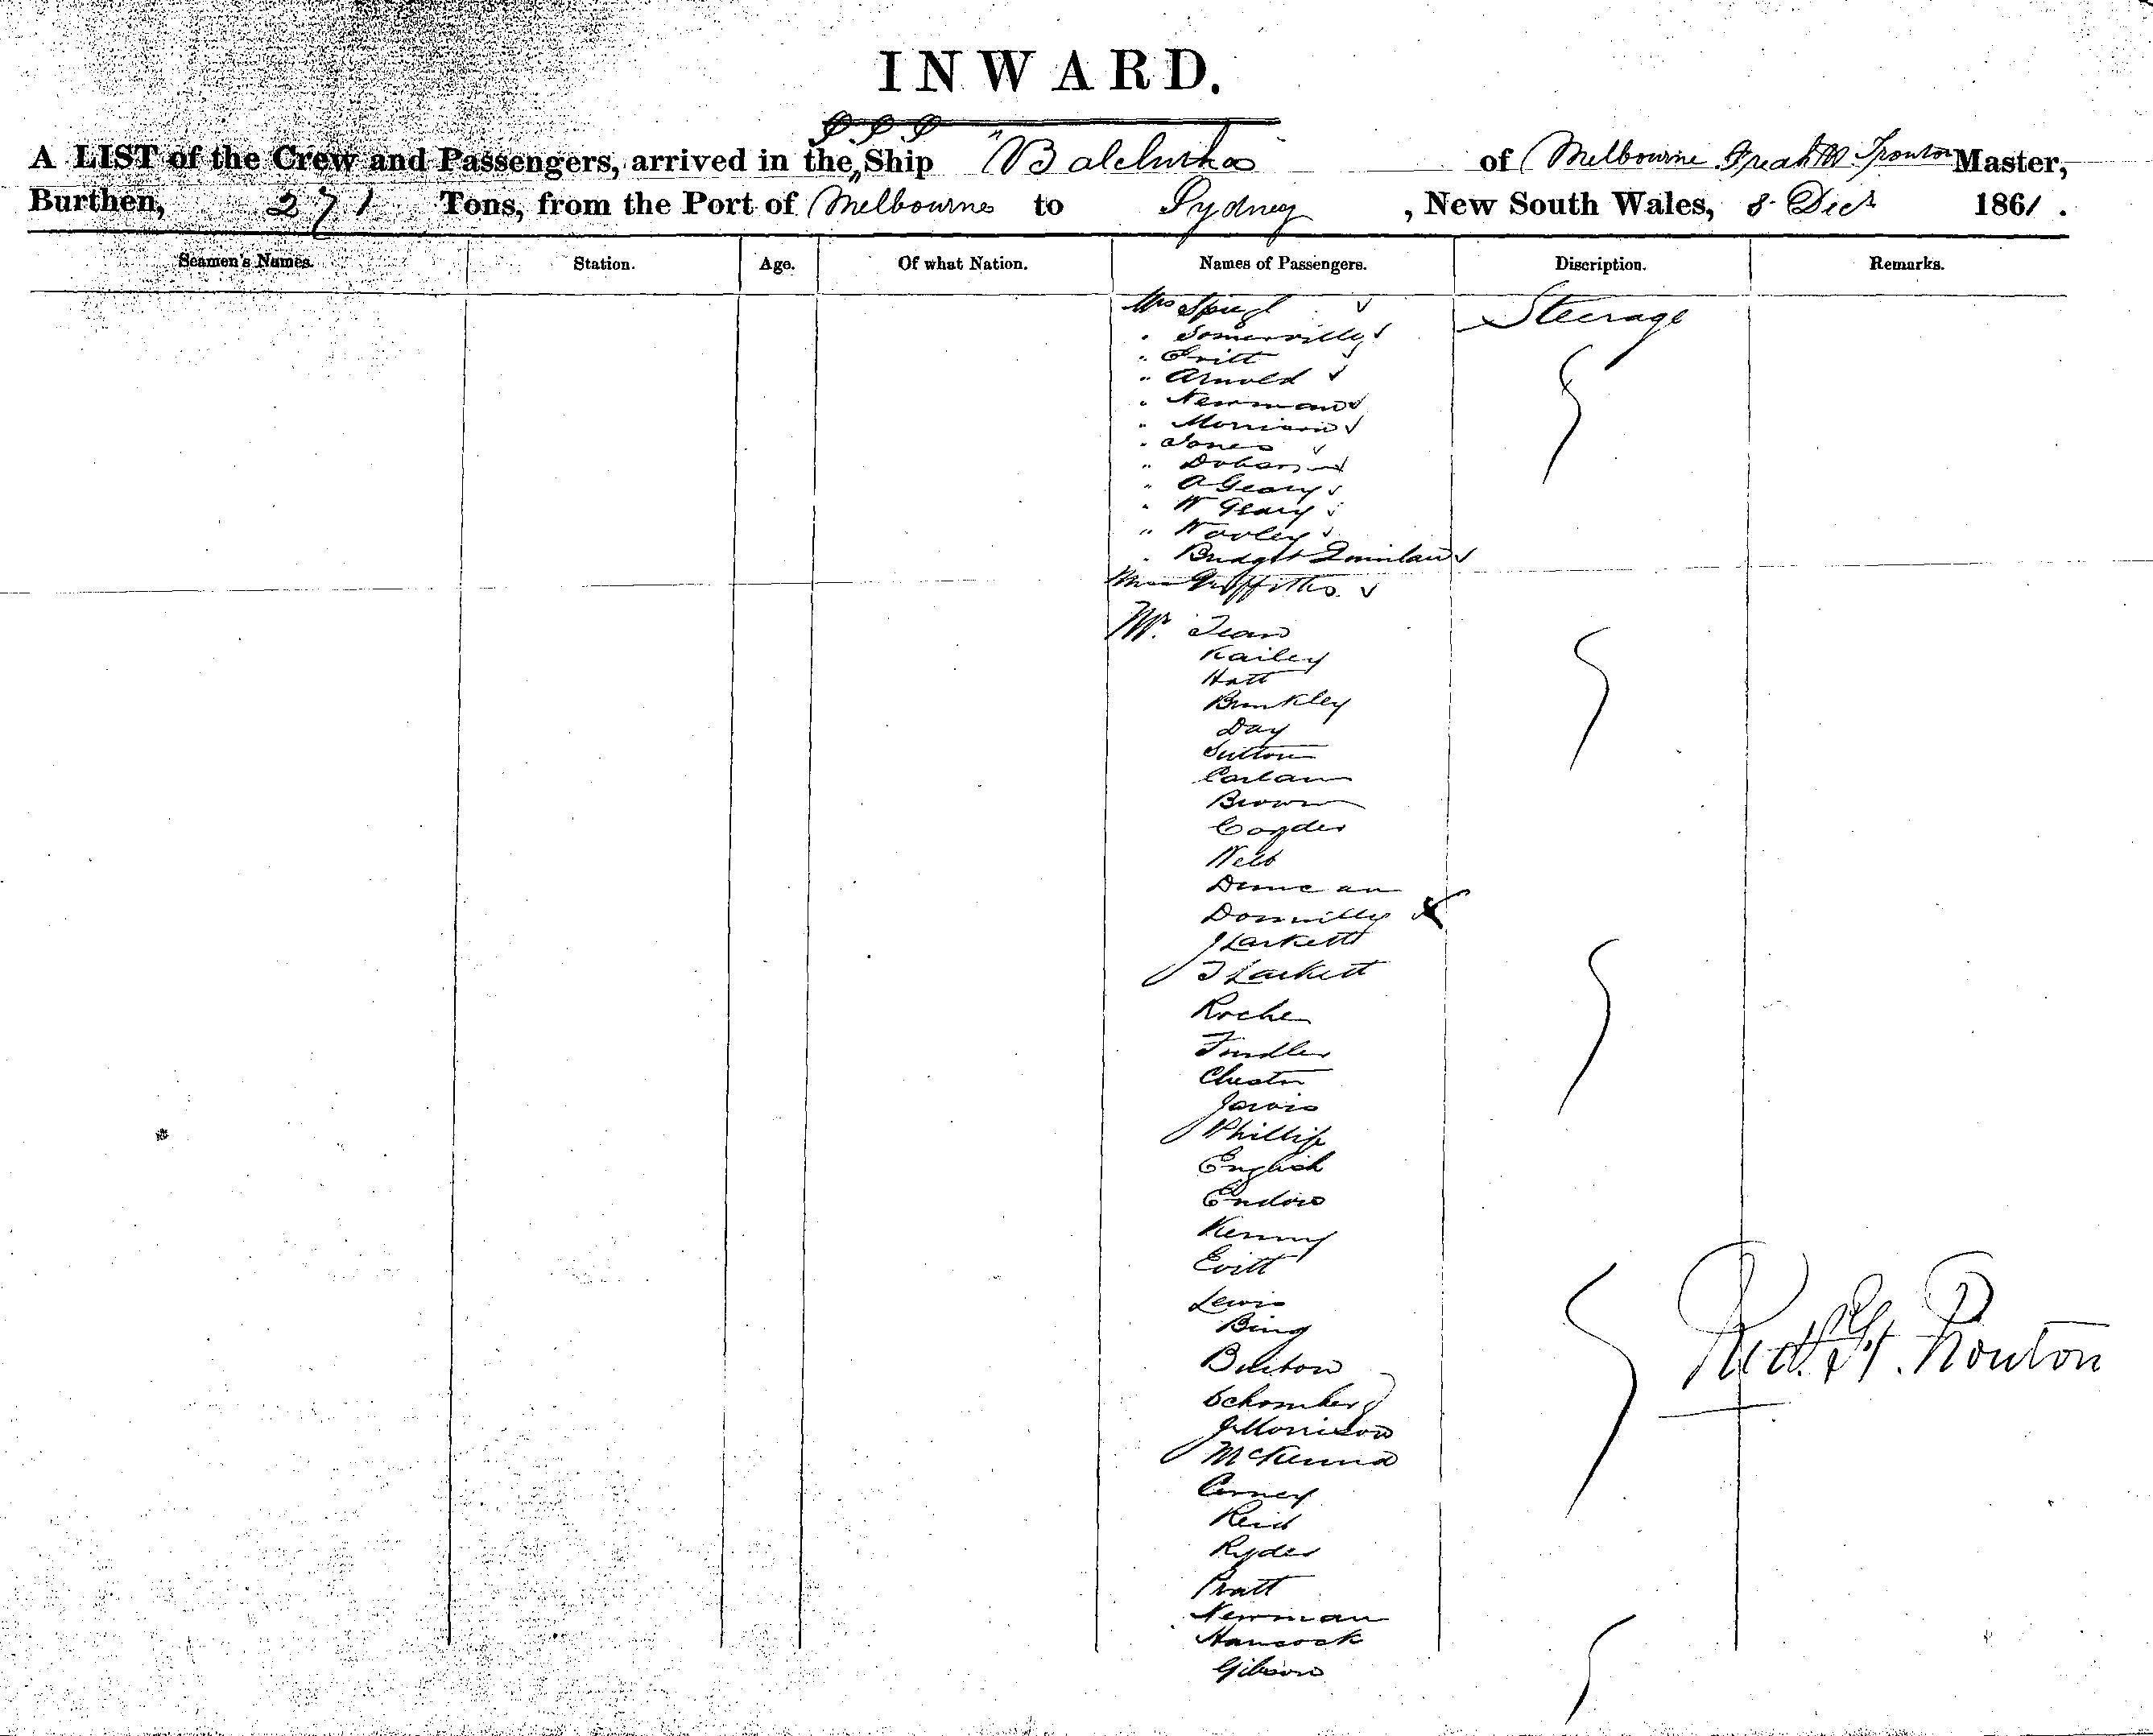 INWARD.
A LIST of the Crew and Passengers, arrived in the Ship "Balclutha of Melbourne Trouton Master,
Burthen, 271 Tons, from the Port of Melbourne to Sydney, New South Wales, 8 Decr 1861.
Seamen's Names. Station. Age. Of what Nation. Names of Passengers. Discription. Remarks.
Mrs Steerage
" Somerville
" Britt
" Arnold
" Newman
" Morrison
" Jones
" Dobson
" A Geary
" W Geary
" Wooley
" Bridget Quinlan
Miss Griffiths
Mr.
Kailey
Hatt
Brinkley
Day
Sutton
Carlan
Brown
Webb
Duncan
Donnilly
J Larkett
T Larkett
Roche
Findler
Chester
Jarvis
Phillip
English
Kenny
Evitt
Lewis
Bing
Burton
Schomberg
J Morrison
McKenna
Carney
Reid
Ryder
Pratt
Newman
Hancock
Gibson
Trouton